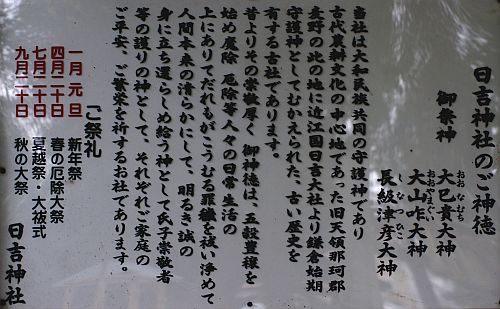 日吉神社のご神徳
御祭神
大己貴大神
おおなむち
大山咋大神
おおやまぐい
長級津彦大神
しなつひこ
当社は大和民族共同の守護神であり
古代農耕文化の中心地であった旧天領那珂郡
麦野の此の地に近江国日吉大社より鎌倉始期
守護神としてむかえられた、古い歴史を
有する古社であります。
昔よりその崇敬厚く 御神徳は、五穀豊穣を
始め魔除 厄除等人々の日常生活の
上にありてだれもがこうむる罪穢を祓い浄めて
人間本来の清らかにして、明るき誠の
身に立ち還らしめ給う神として氏子崇敬者
等の護りの神として、それぞれご家庭の
ご平安、ご繁栄を祈するお社であります。
ご祭礼
一月元旦 新年祭
四月二十日 春の厄除大祭
七月二十日 夏越祭・大祓式
九月二十日 秋の大祭
日吉神社